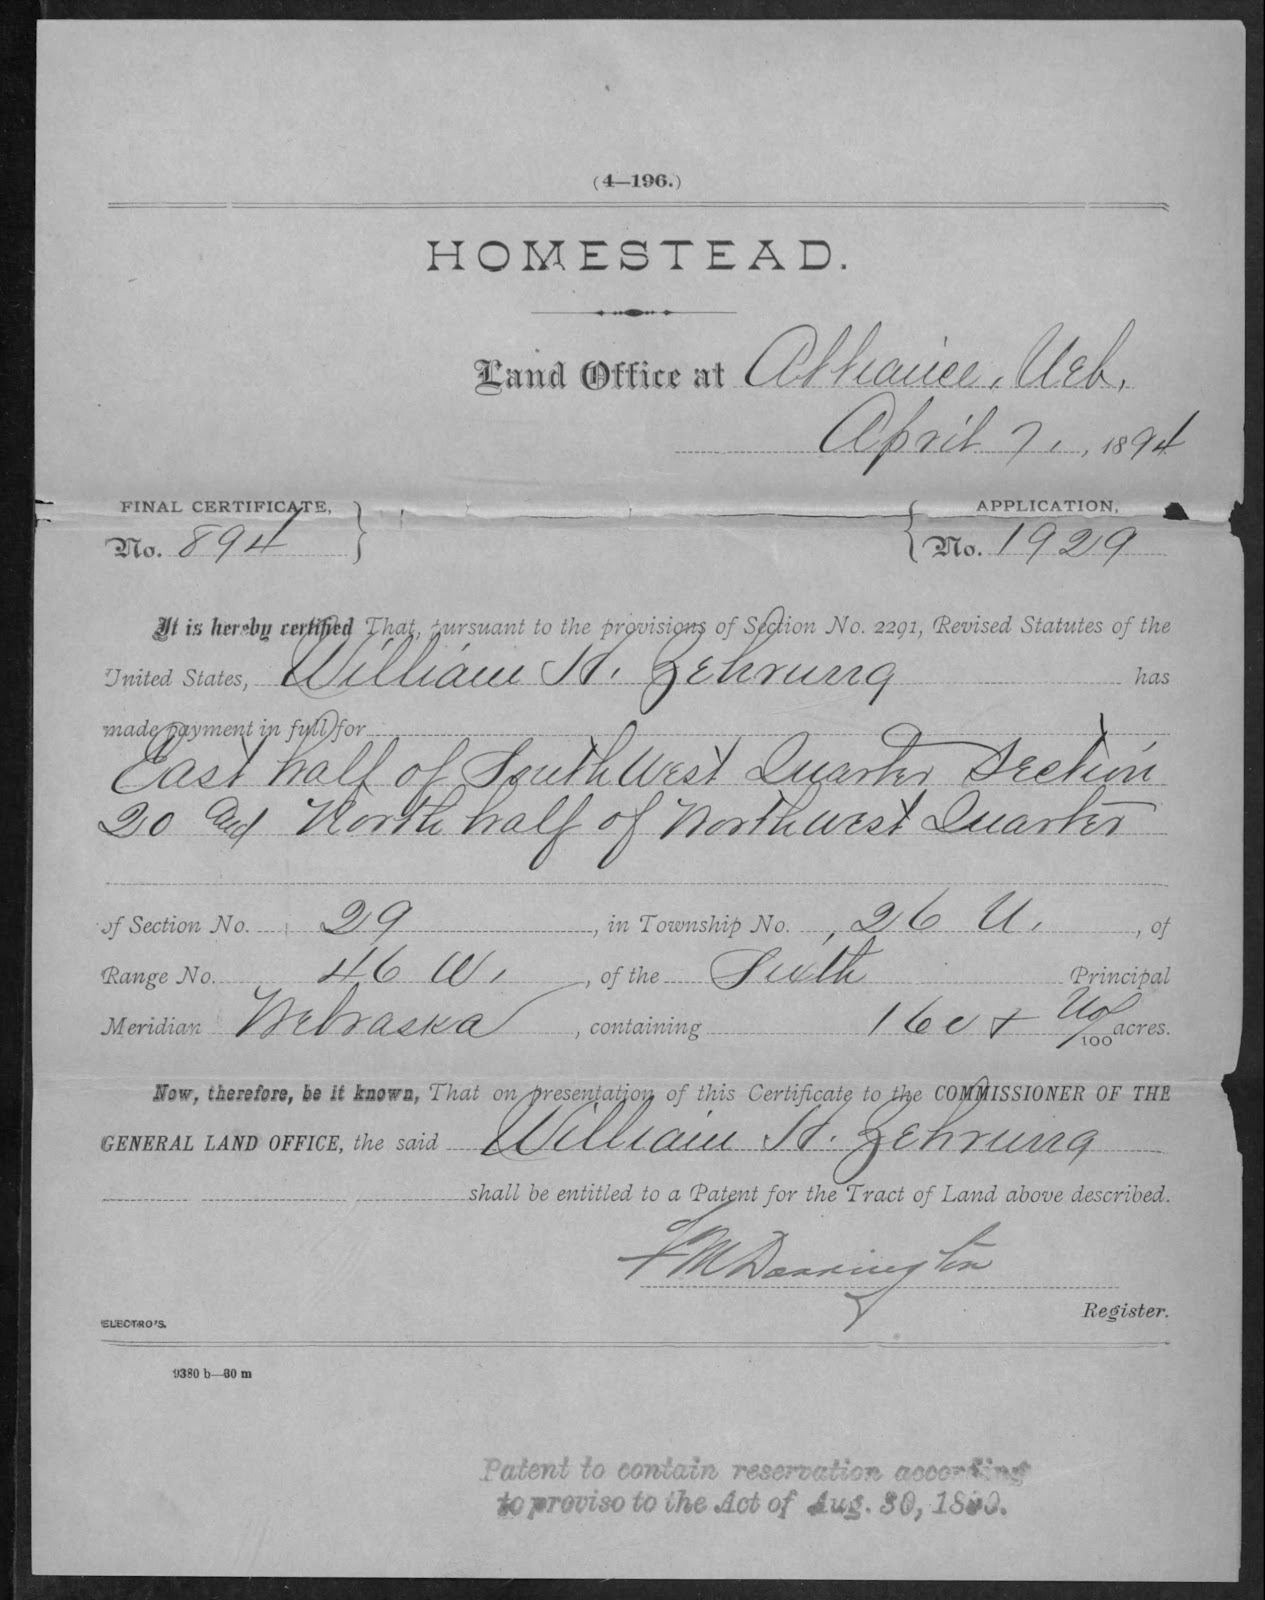 (4—196.)
HOMESTEAD.
Land Office at Alliance, Neb.
April 7, 1894
FINAL CERTIFICATE,
No. 894
APPLICATION,
No. 1929
It is hereby certified That, pursuant to the provisions of Section No. 2291, Revised Statutes of the
United States, William H. Zehrung has
made payment in full for
East half of Southwest Quarter Section
20 and North half of Northwest Quarter
of Section No. 29, in Township No. 26 N., of
Range No. 46 W., of the Sixth Principal
Meridian Nebraska, containing 160 & No/100 acres.
Now, therefore, be it known, That on presentation of this Certificate to the COMMISSIONER OF THE
GENERAL LAND OFFICE, the said William H. Zehrung
shall be entitled to a Patent for the Tract of Land above described.
F M Dorrington
Register.
ELECTRO'S.
9380 b—30 m
Patent to contain reservation according
to proviso to the Act of Aug. 30, 1890.